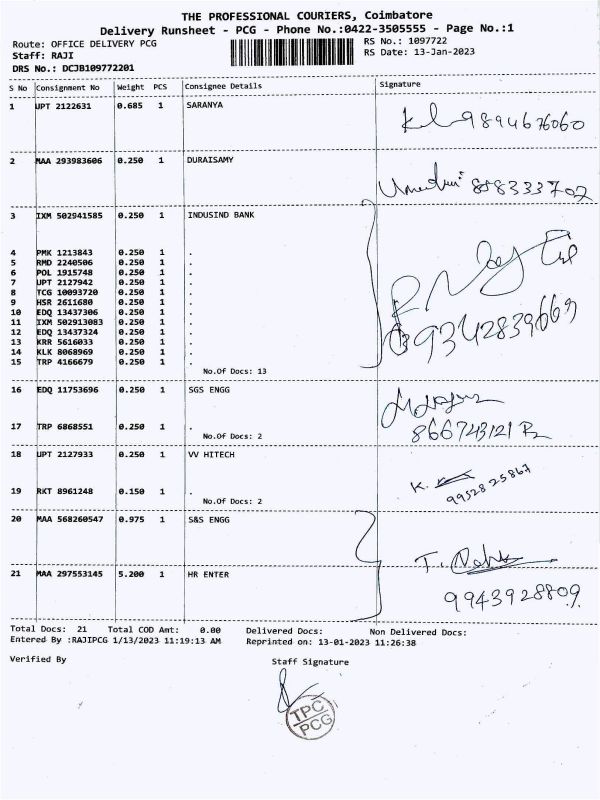 THE PROFESSIONAL COURIERS, Coimbatore
Delivery Runsheet - PCG - Phone No.:0422-3505555 - Page No.:1
Route: OFFICE DELIVERY PCG RS No.: 1097722
Staff: RAJI RS Date: 13-Jan-2023
DRS No.: DCJB109772201
S No Consignment No Weight PCS Consignee Details Signature
1 UPT 2122631 0.685 1 SARANYA
9894676060
2 MAA 293983606 0.250 1 DURAISAMY
3 IXM 502941585 0.250 1 INDUSIND BANK
4 PMK 1213843 0.250 1 .
5 RMD 2240506 0.250 1 .
6 POL 1915748 0.250 1 .
7 UPT 2127942 0.250 1 .
8 TCG 10093720 0.250 1 .
9 HSR 2611680 0.250 1 .
10 EDQ 13437306 0.250 1 .
11 IXM 502913083 0.250 1 .
12 EDQ 13437324 0.250 1 .
13 KRR 5616033 0.250 1 .
14 KLK 8068969 0.250 1 .
15 TRP 4166679 0.250 1 .
9342839669
No.Of Docs: 13
16 EDQ 11753696 0.250 1 SGS ENGG
17 TRP 6868551 0.250 1 .
8667243121
No.Of Docs: 2
18 UPT 2127933 0.250 1 VV HITECH
K.
19 RKT 8961248 0.150 1 .
9952825867
No.Of Docs: 2
20 MAA 568260547 0.975 1 S&S ENGG
21 MAA 297553145 5.200 1 HR ENTER
9943928809
Total Docs: 21 Total COD Amt: 0.00 Delivered Docs: Non Delivered Docs:
Entered By :RAJIPCG 1/13/2023 11:19:13 AM Reprinted on: 13-01-2023 11:26:38
Verified By Staff Signature
TPC
PCG